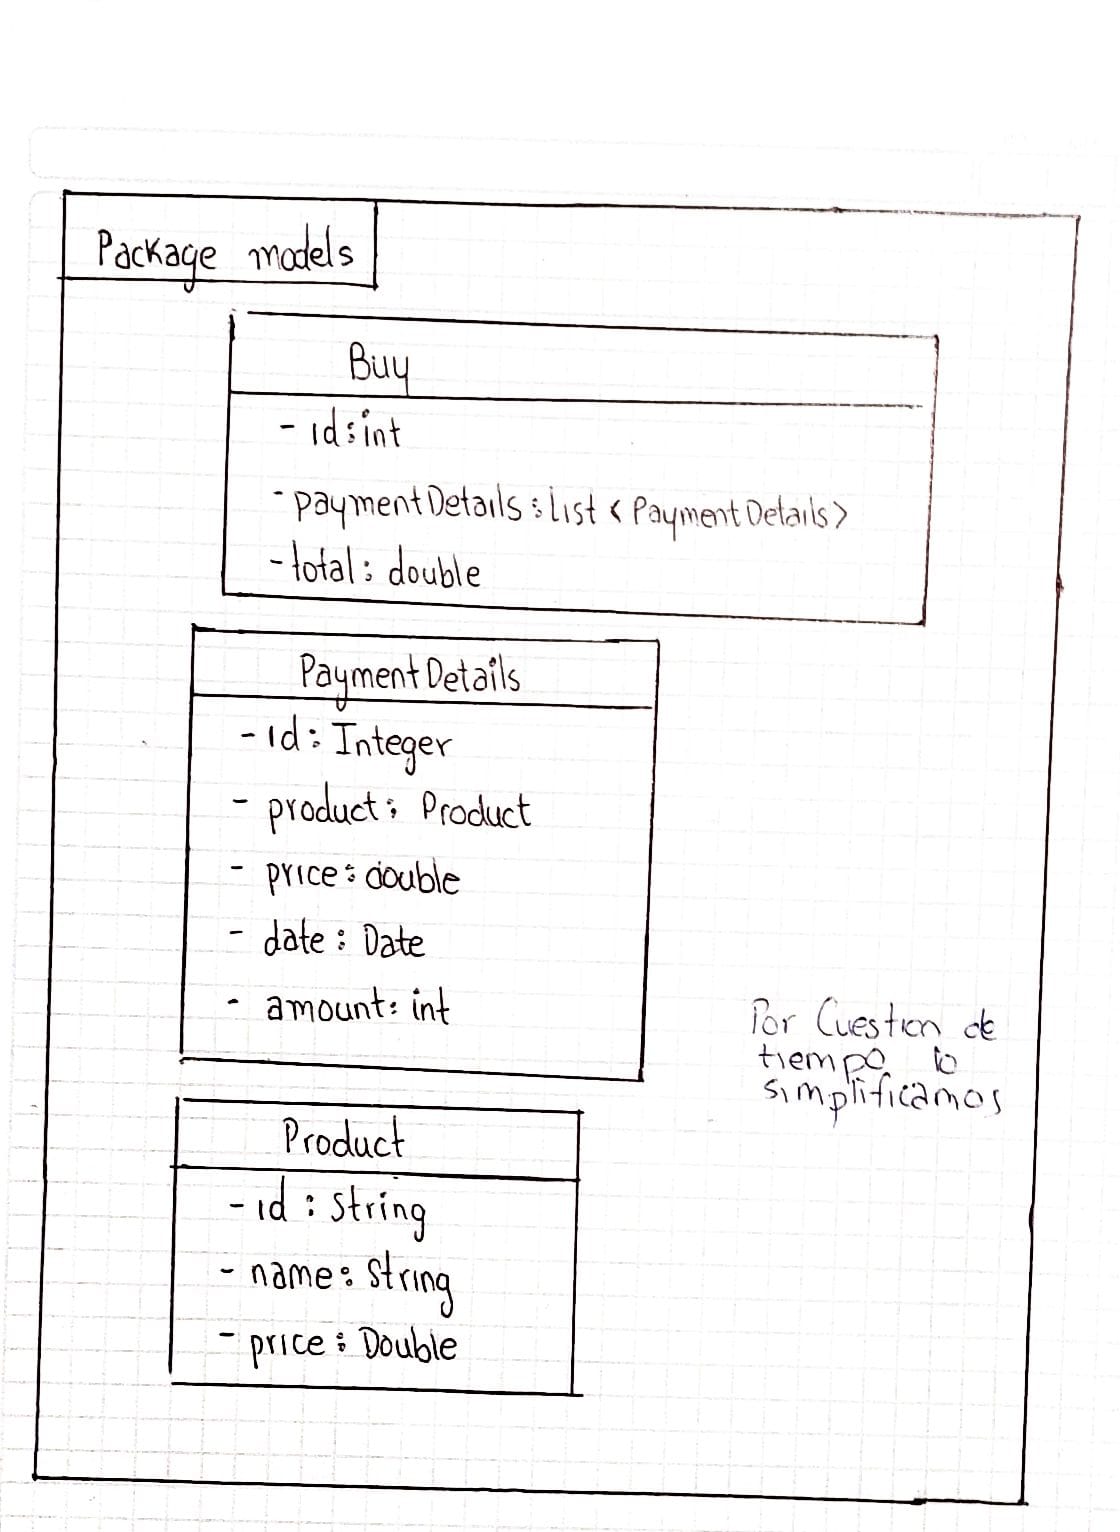 Package models
Buy
- id: int
- paymentDetails: List < PaymentDetails>
- total: double
PaymentDetails
- id: Integer
- product: Product
- price: double
- date: Date
- amount: int
Por Cuestion de
tiempo lo
simplificamos
Product
- id: String
- name: String
- price: Double